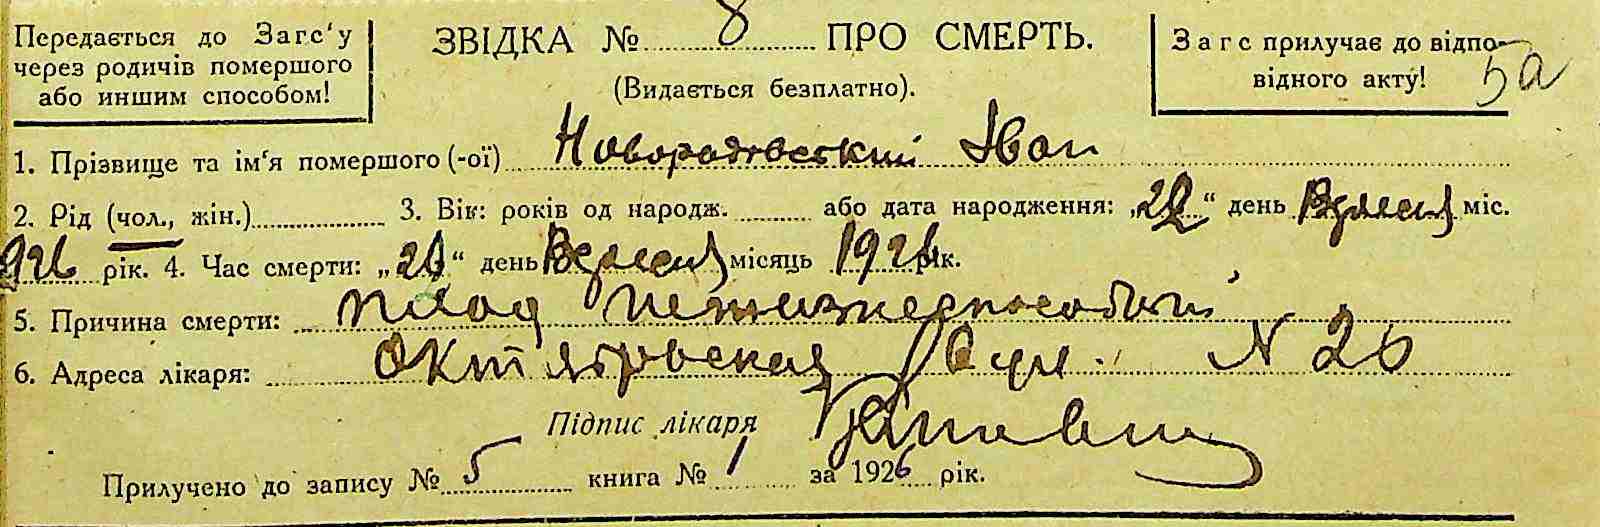 Передається до Загс‘у
через родичів помершого
або иншим способом!
ЗВІДКА № 8 ПРО СМЕРТЬ.
(Видається безплатно).
Загс прилучає до відпо-
відного акту!
5а
1. Прізвище та ім‘я помершого (-ої) Іван
2. Рід (чол., жін.) 3. Вік: років од народж. або дата народження: „ “ день Вересня міс.
926 рік. 4. Час смерти: „ “ день Вересня місяць 1926 рік.
5. Причина смерти: плод нежизнеспособный
6. Адреса лікаря: Октябрьская ул. N 26
Підпис лікаря
Прилучено до запису № 5 книга № 1 за 1926 рік.